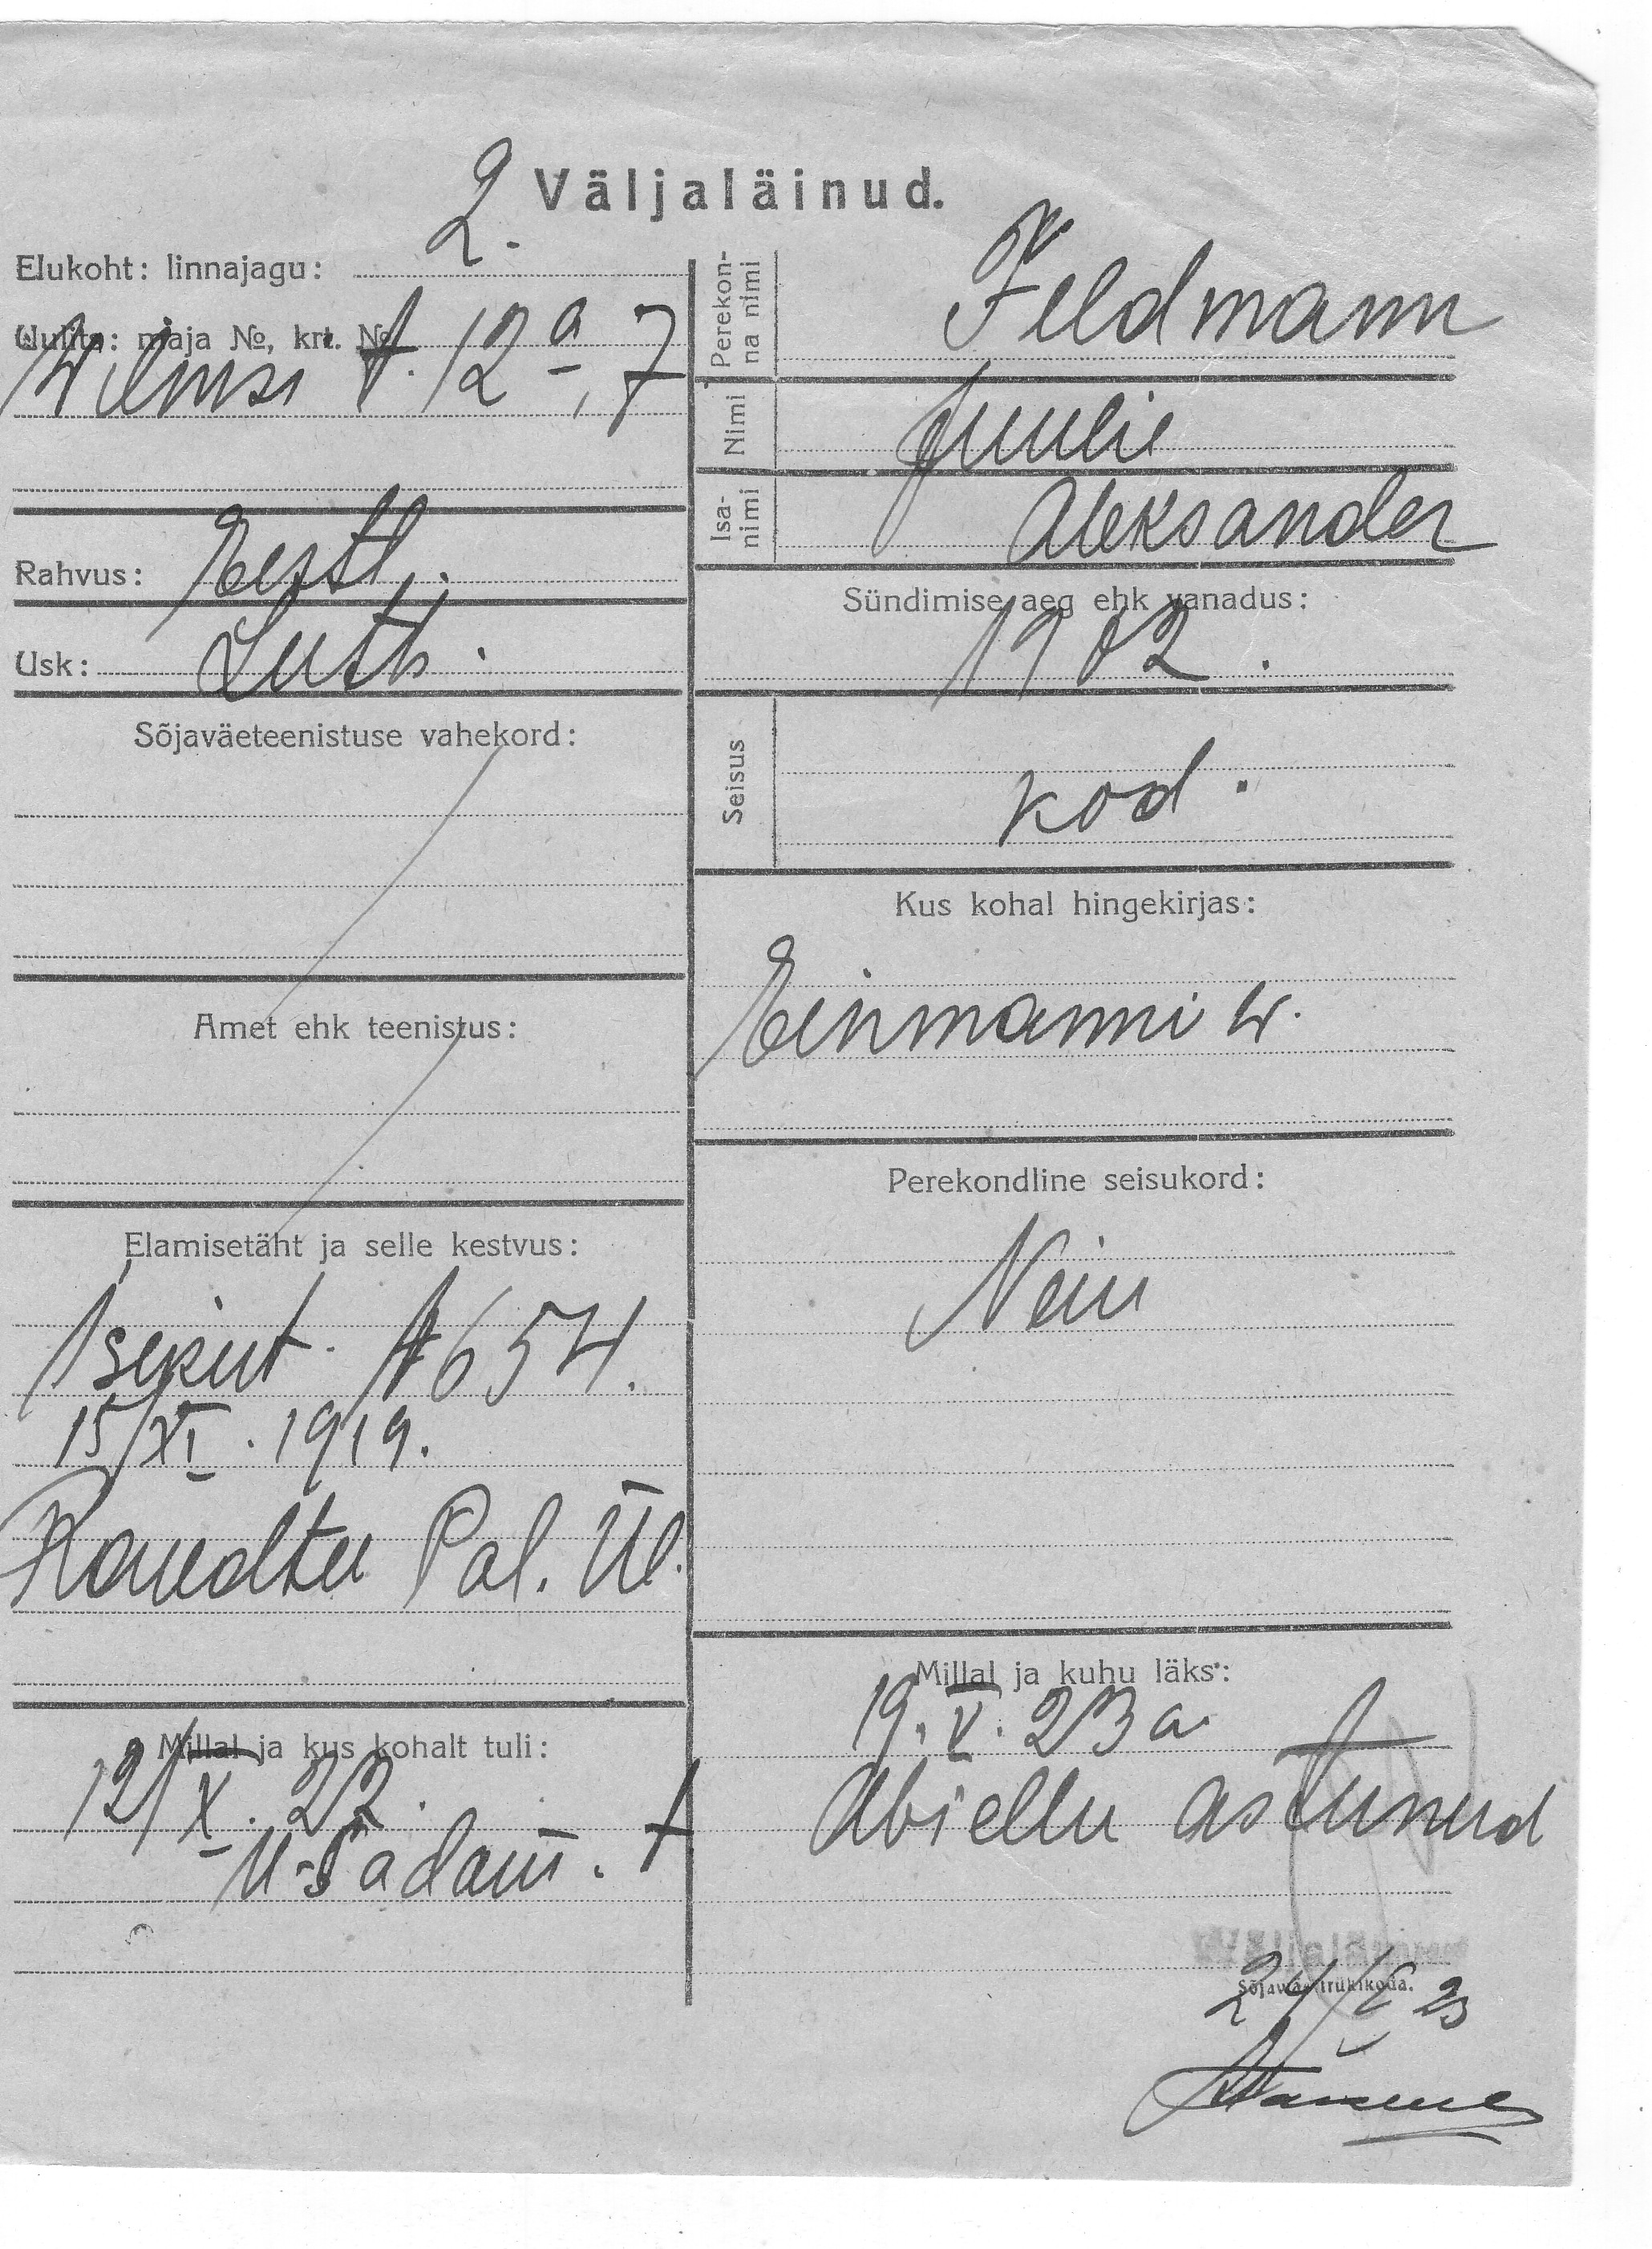 2. Väljaläinud.
Elukoht: linnajagu:
Uulits: maja №, krt. №
Wilmsi t. 12ª-, 7
Rahvus: Eestl.
Usk: Luth.
Sõjaväeteenistuse vahekord:
Amet ehk teenistus:
Elamisetäht ja selle kestvus:
Isikut. A654.
15/XI. 1919.
Raudtee Pol. Ül.
Millal ja kus kohalt tuli:
12/X. 22.
U-Sadam. t
Perekonna nimi
Feldmann
Nimi
Juulie
Isanimi
Aleksander
Sündimise aeg ehk vanadus:
1902.
Seisus
kod.
Kus kohal hingekirjas:
Einmanni w.
Perekondline seisukord:
Neiu
Millal ja kuhu läks:
19. V. 23 a
Abiellu astunud
Väljaläinud
Sõjaväe trükikoda.
24/V 23